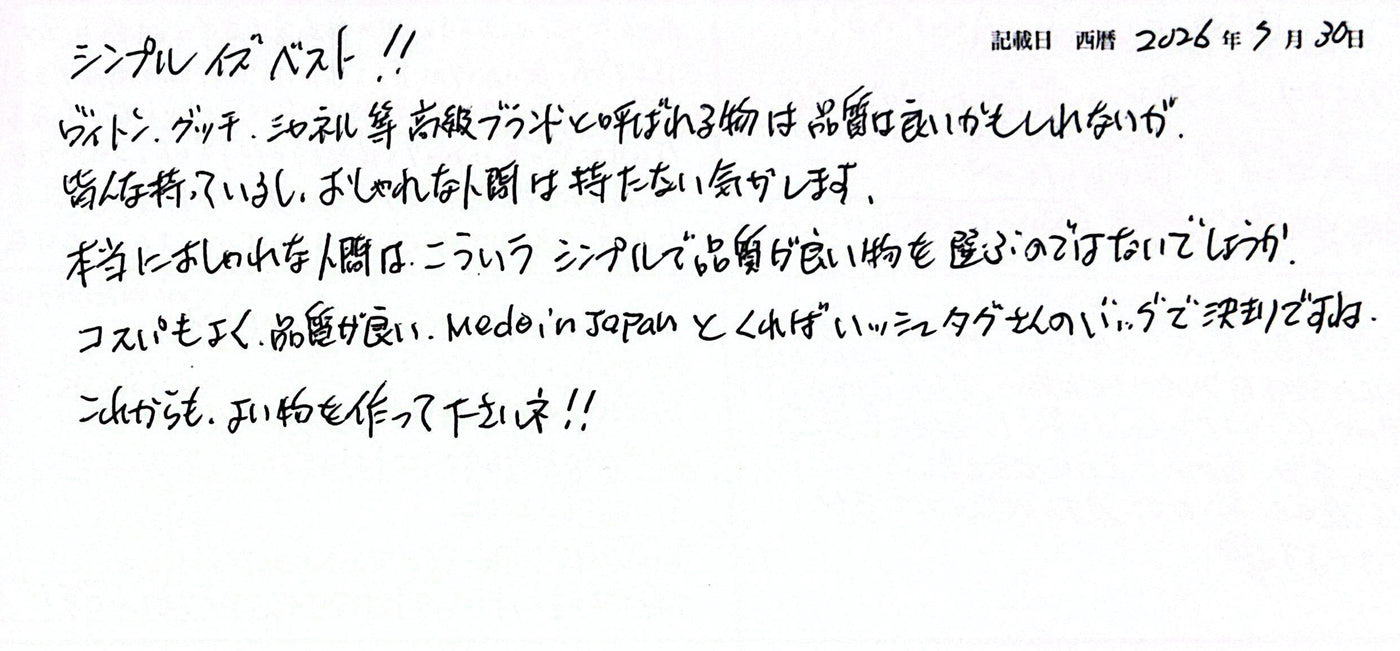 記載日 西暦 2026年5月30日
シンプルイズベスト!!
ヴィトン.グッチ.シャネル等高級ブランドと呼ばれる物は品質は良いかもしれないが.
皆んな持っているし.おしゃれな人間は持たない気がします.
本当におしゃれな人間は.こういうシンプルで品質が良い物を選ぶのではないでしょうか.
コスパもよく.品質が良い.Made in Japanとくればいッシュタグさんのバッグで決まりですね.
これからも.よい物を作って下さいネ!!